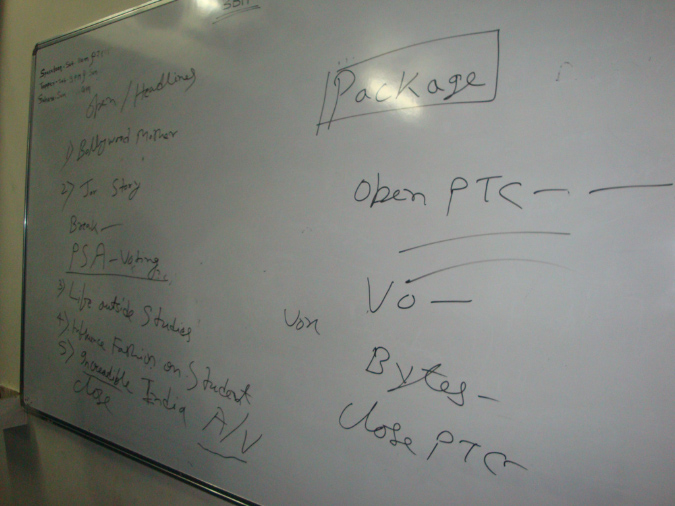 Open / Headlines
1) Bollywood Mother
2) Jor Story
Break -
PSA - Voting
3) Life outside Studies
4) Fashion on Student
5) Incredible India A/V
Close
Package
Open PTC - —
Vo -
Vox
Bytes -
Close PTC -